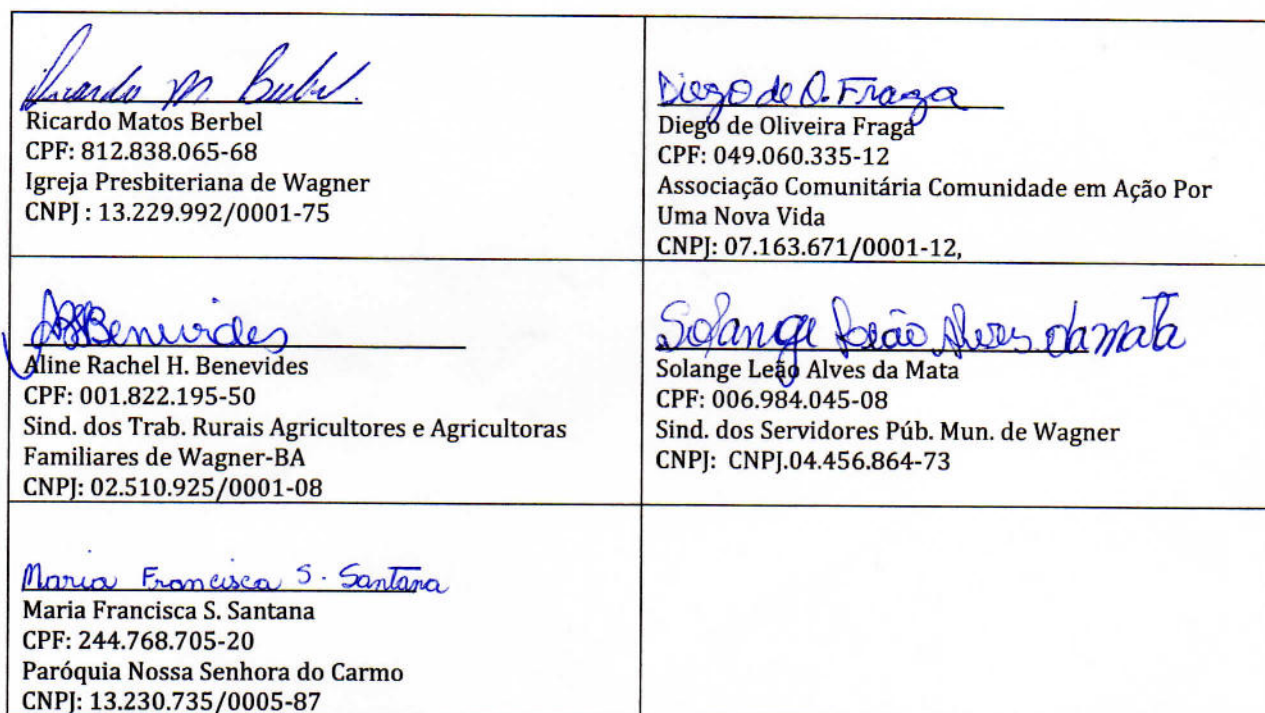 Ricardo M Berbel.
Ricardo Matos Berbel
CPF: 812.838.065-68
Igreja Presbiteriana de Wagner
CNPJ : 13.229.992/0001-75
Diego de O. Fraga
Diego de Oliveira Fraga
CPF: 049.060.335-12
Associação Comunitária Comunidade em Ação Por
Uma Nova Vida
CNPJ: 07.163.671/0001-12,
Benevides
Aline Rachel H. Benevides
CPF: 001.822.195-50
Sind. dos Trab. Rurais Agricultores e Agricultoras
Familiares de Wagner-BA
CNPJ: 02.510.925/0001-08
Solange Leão Alves da Mata
Solange Leão Alves da Mata
CPF: 006.984.045-08
Sind. dos Servidores Púb. Mun. de Wagner
CNPJ: CNPJ.04.456.864-73
Maria Francisca S. Santana
Maria Francisca S. Santana
CPF: 244.768.705-20
Paróquia Nossa Senhora do Carmo
CNPJ: 13.230.735/0005-87